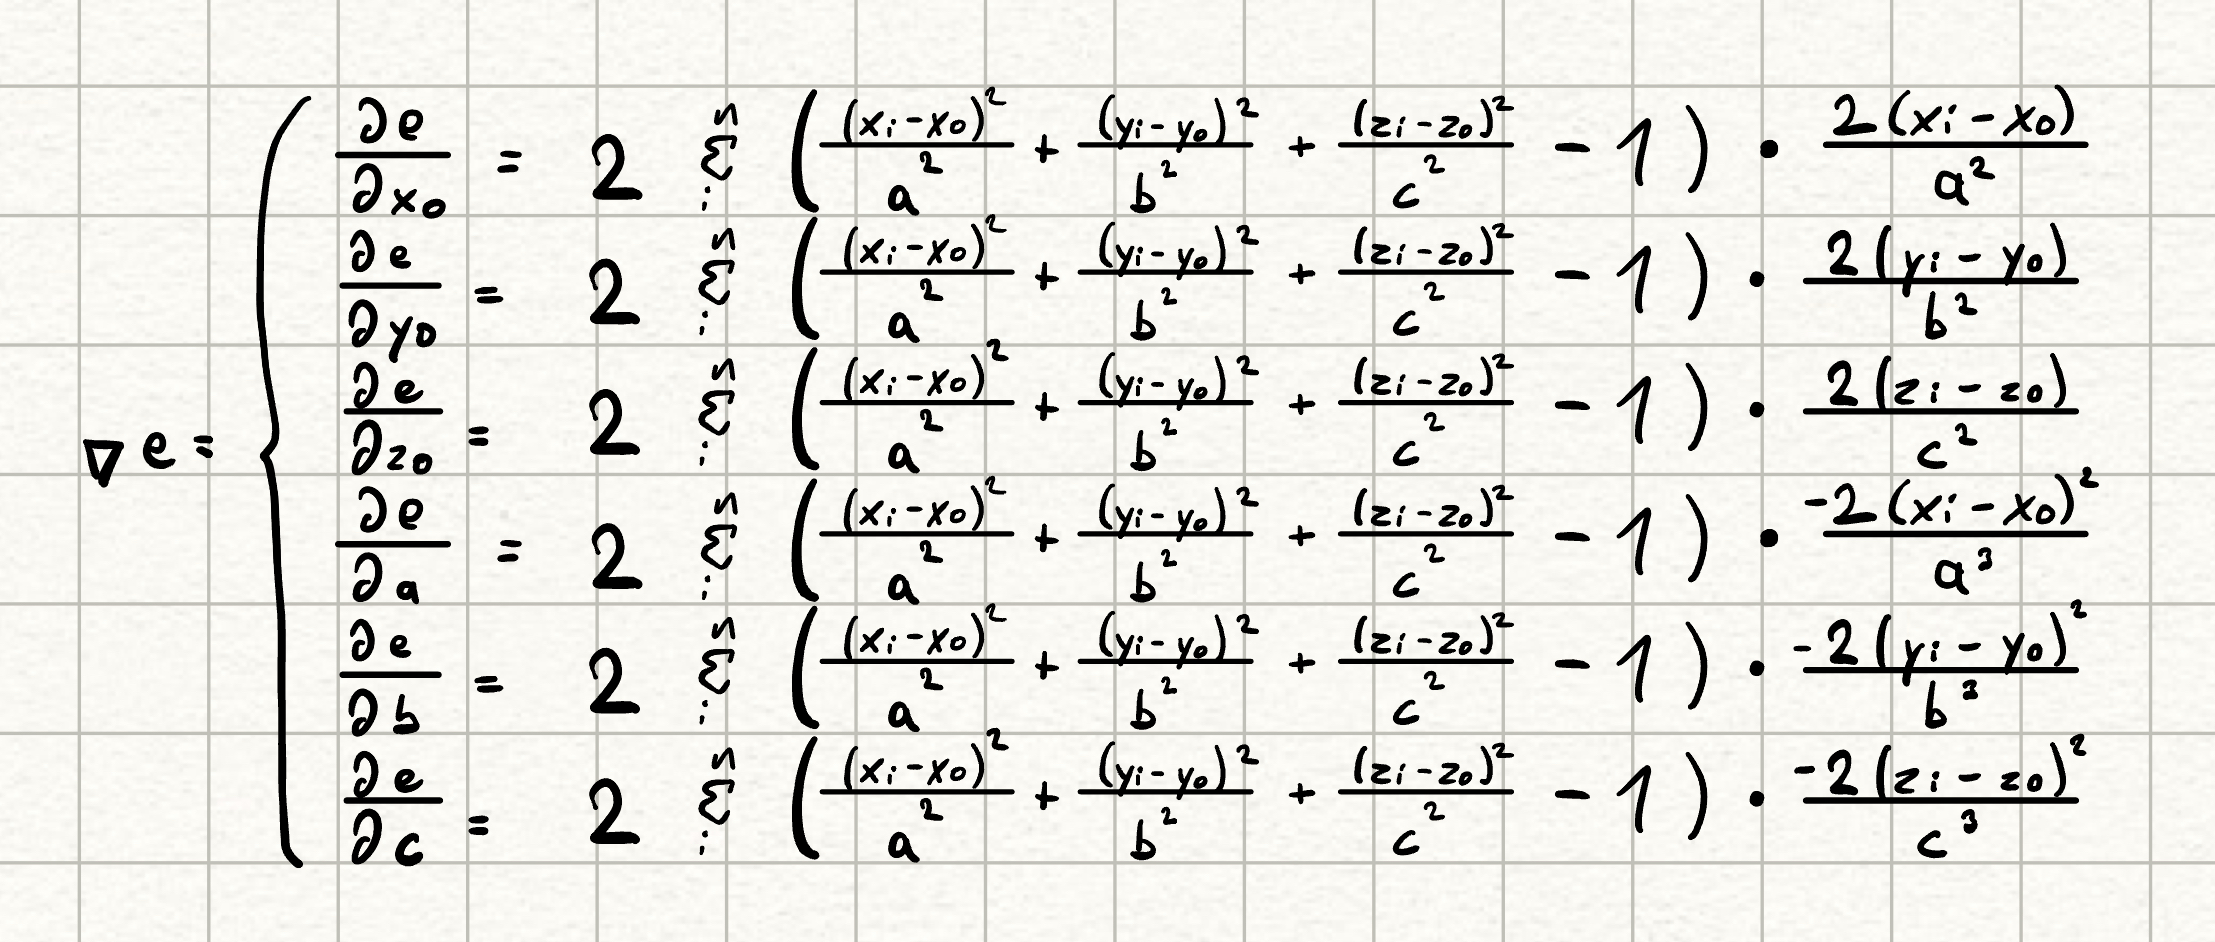 ∇e = { ∂e/∂x₀ = 2 Σᵢⁿ ( (xᵢ-x₀)²/a² + (yᵢ-y₀)²/b² + (zᵢ-z₀)²/c² - 1 ) • 2(xᵢ-x₀)/a²
∂e/∂y₀ = 2 Σᵢⁿ ( (xᵢ-x₀)²/a² + (yᵢ-y₀)²/b² + (zᵢ-z₀)²/c² - 1 ) • 2(yᵢ-y₀)/b²
∂e/∂z₀ = 2 Σᵢⁿ ( (xᵢ-x₀)²/a² + (yᵢ-y₀)²/b² + (zᵢ-z₀)²/c² - 1 ) • 2(zᵢ-z₀)/c²
∂e/∂a = 2 Σᵢⁿ ( (xᵢ-x₀)²/a² + (yᵢ-y₀)²/b² + (zᵢ-z₀)²/c² - 1 ) • -2(xᵢ-x₀)²/a³
∂e/∂b = 2 Σᵢⁿ ( (xᵢ-x₀)²/a² + (yᵢ-y₀)²/b² + (zᵢ-z₀)²/c² - 1 ) • -2(yᵢ-y₀)²/b³
∂e/∂c = 2 Σᵢⁿ ( (xᵢ-x₀)²/a² + (yᵢ-y₀)²/b² + (zᵢ-z₀)²/c² - 1 ) • -2(zᵢ-z₀)²/c³